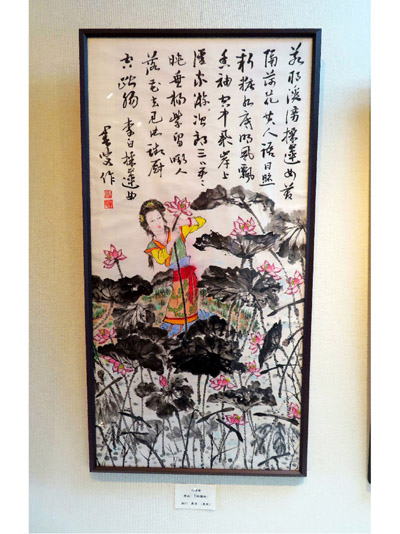 若耶溪傍採蓮女笑
隔荷花共人語日照
新粧水底明風飄
香袖空中舉岸上
誰家遊冶郎三三五五
映垂楊紫騮嘶入
落花去見此踟躕
空断腸 李白採蓮曲
作